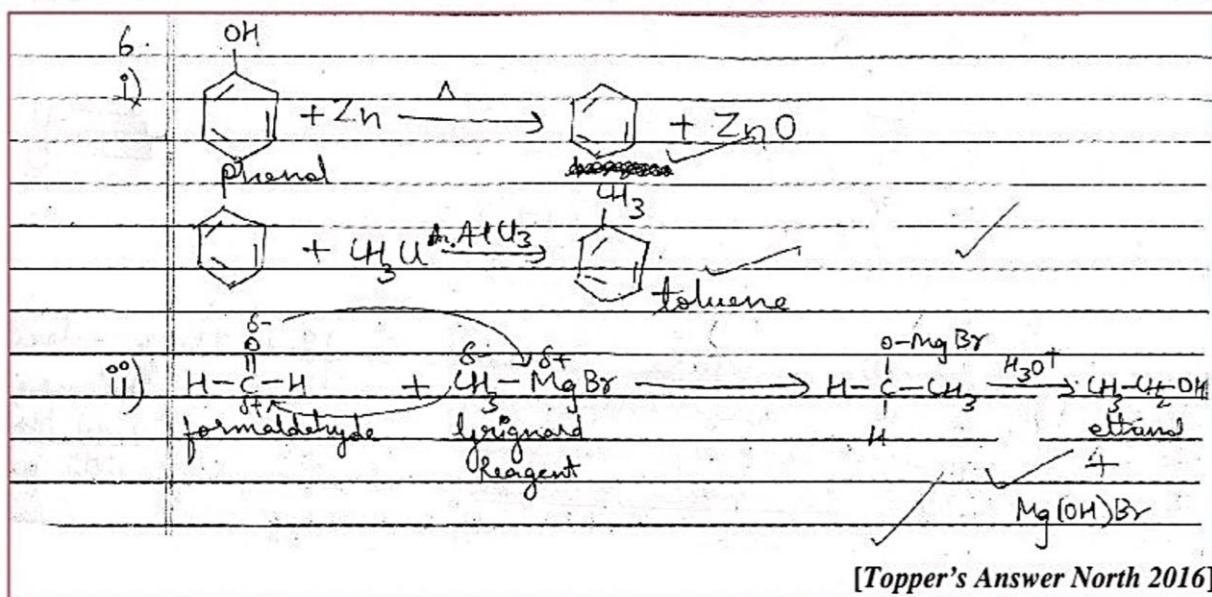 6.
OH
i)
+ Zn Δ + ZnO
phenol
CH3
+ CH3Cl An. AlCl3
toluene
δ- O δ- δ+ O-MgBr
ii) H-C-H + CH3-MgBr H-C-CH3 H3O+ CH3-CH2-OH
δ+ H
formaldehyde Grignard Reagent ethanol
+
Mg(OH)Br
[Topper's Answer North 2016]